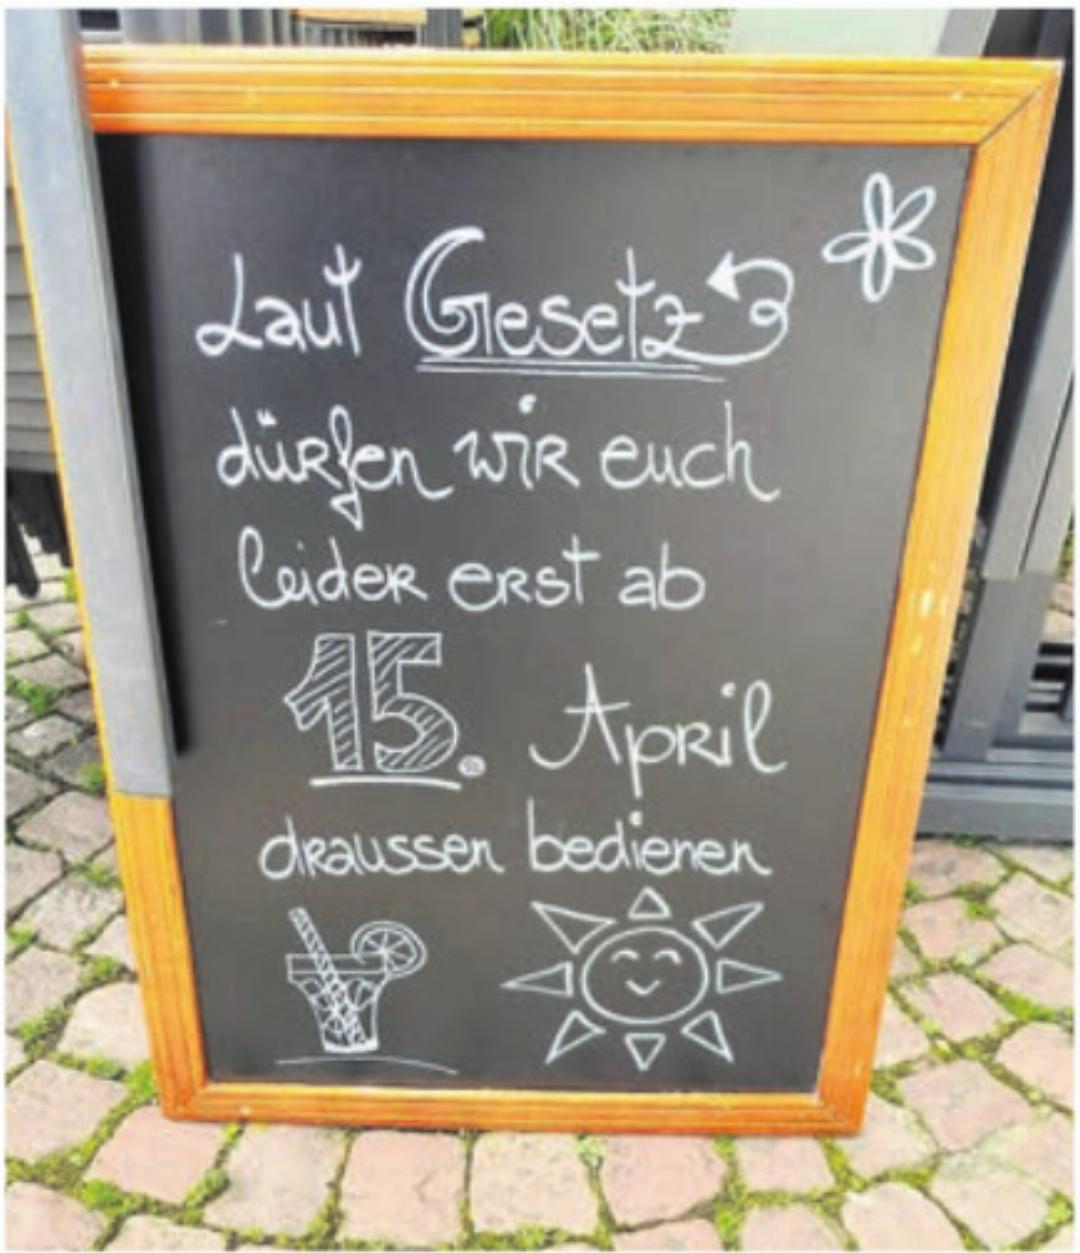 Laut Gesetz
dürfen wir euch
leider erst ab
15. April
draussen bedienen